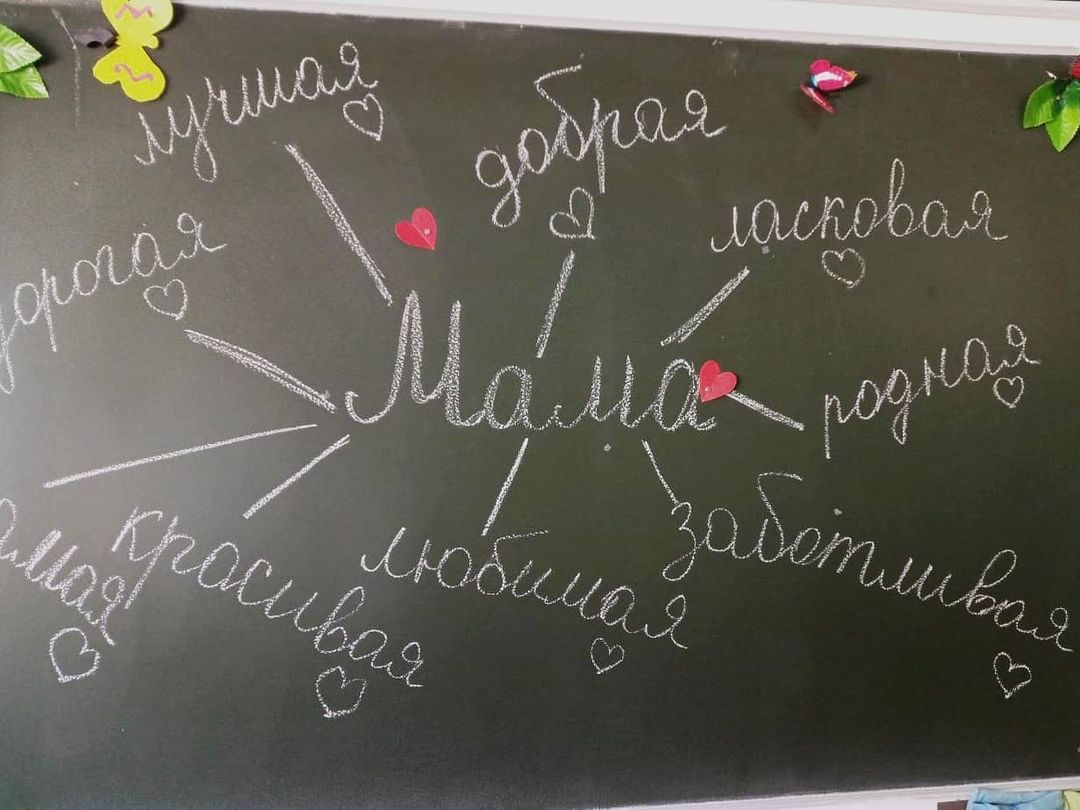 лучшая
добрая
ласковая
дорогая
Мама
родная
красивая
любимая
заботливая